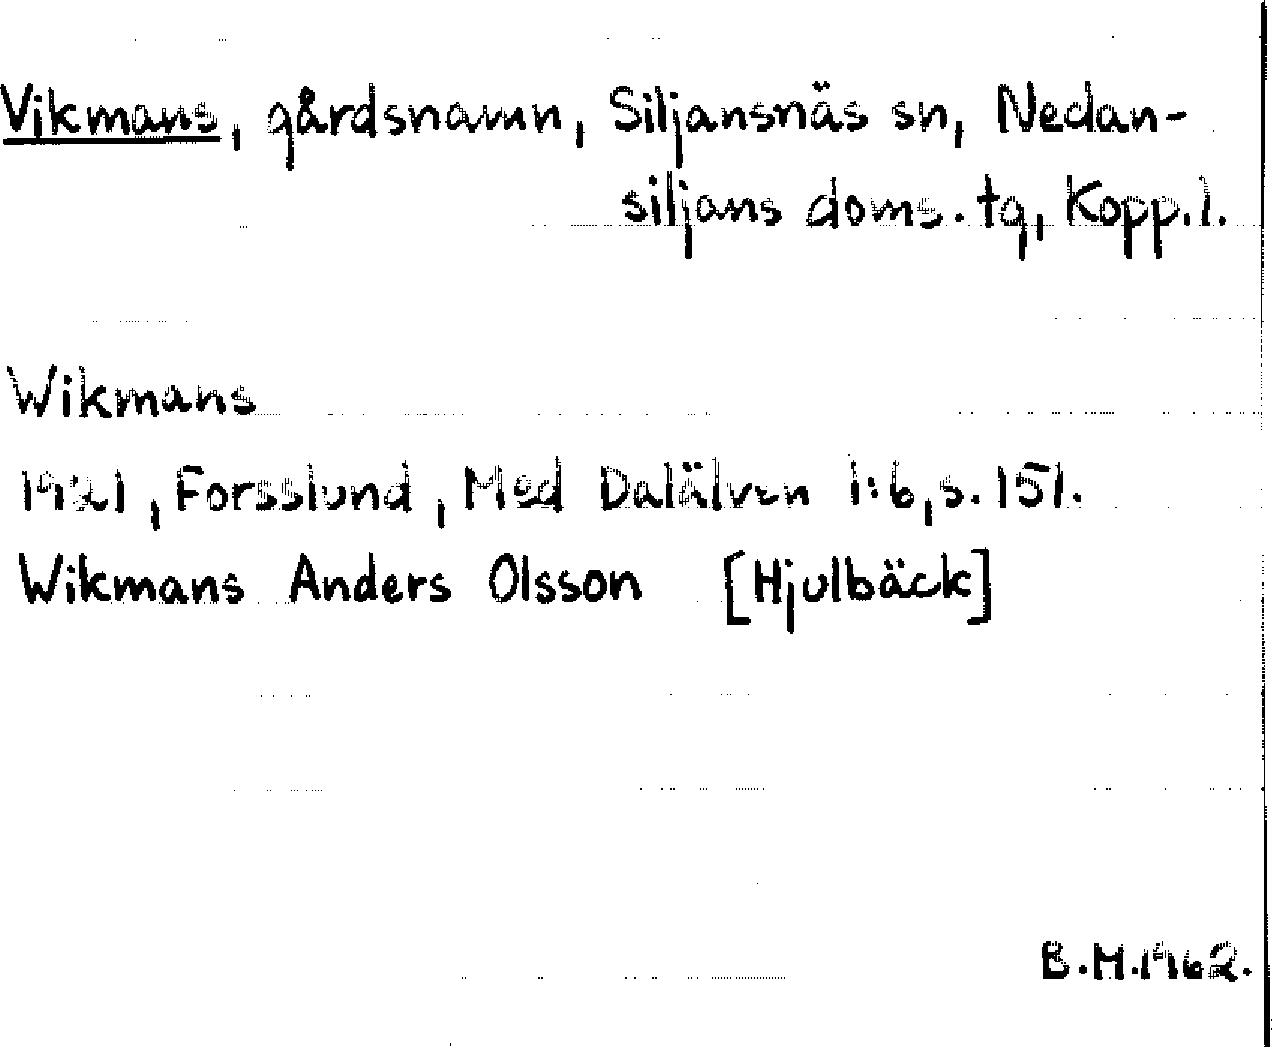 Vikmans, gårdsnamn, Siljansnäs sn, Nedan-
siljans doms. tg, Kopp. l.
Wikmans
1921, Forsslund, Med Dalälven 1:6, s. 151.
Wikmans Anders Olsson [Hjulbäck]
B.M. 1962.